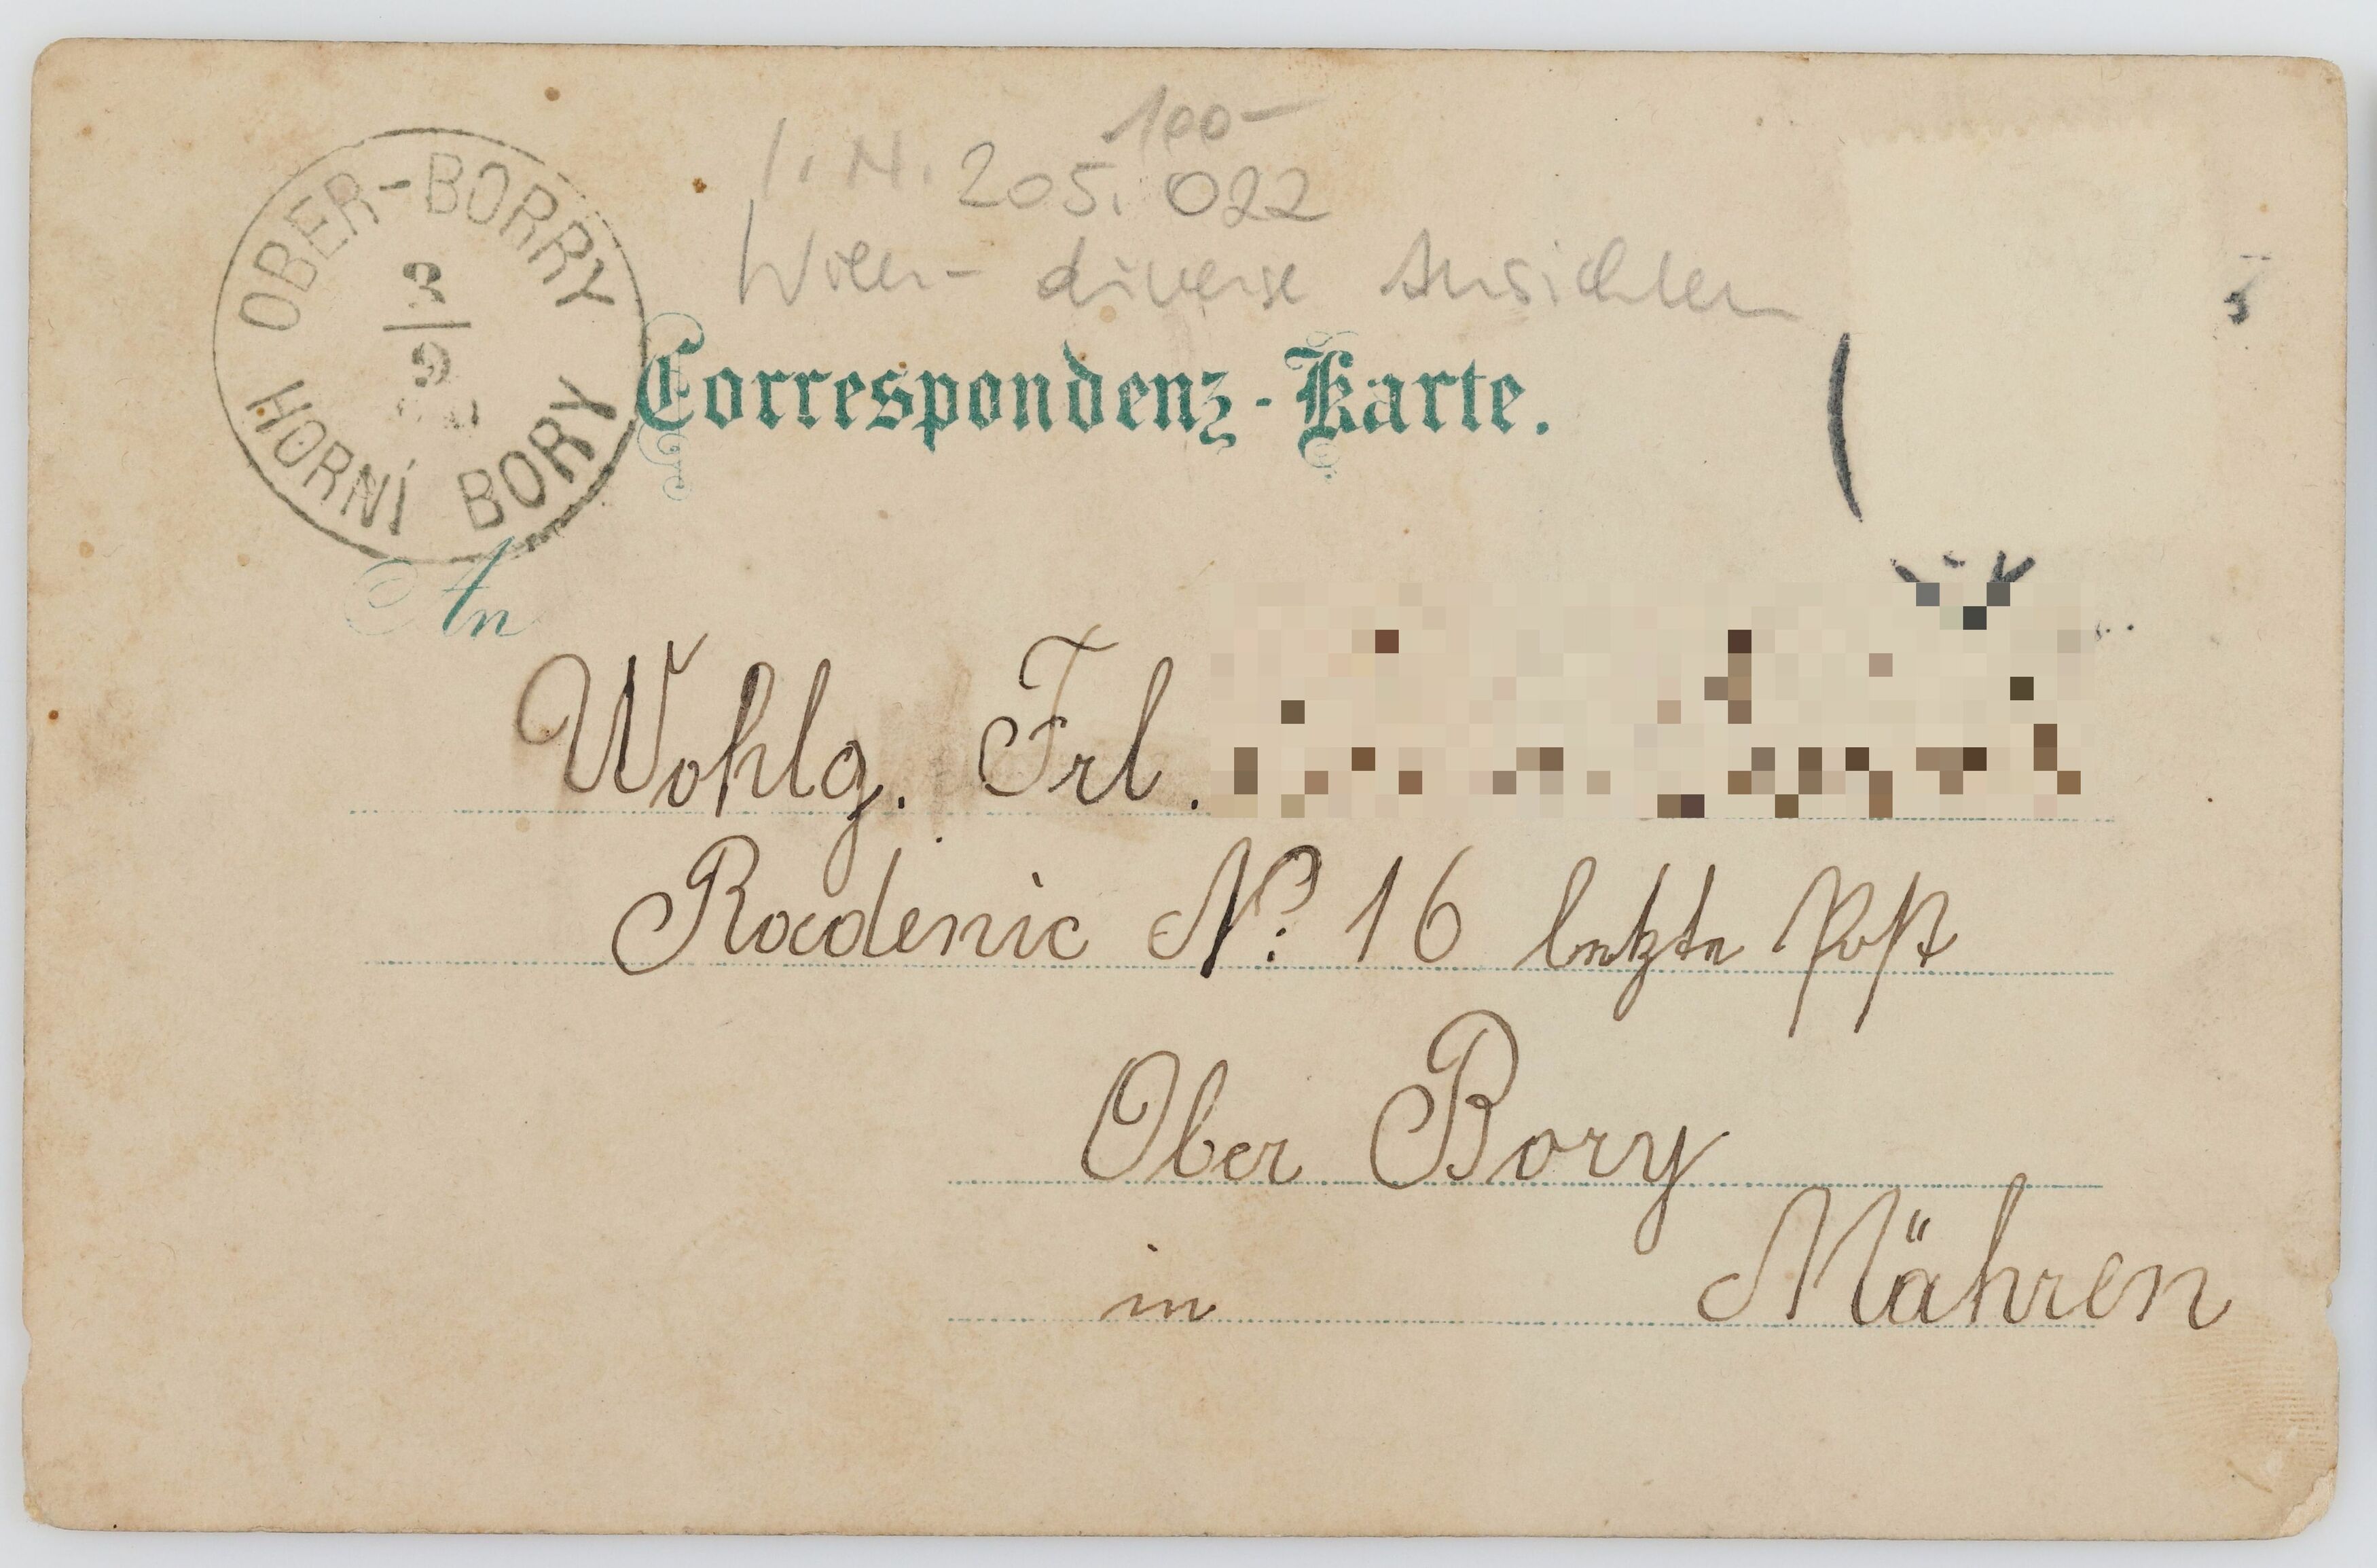 100-
I. N. 205. 022
Wien - diverse Ansichten
OBER-BORRY
3/9
HORNÍ BORY
Correspondenz-Karte.
An
Wohlg. Frl.
Radenic No. 16 letzte Post
Ober Bory
in Mähren